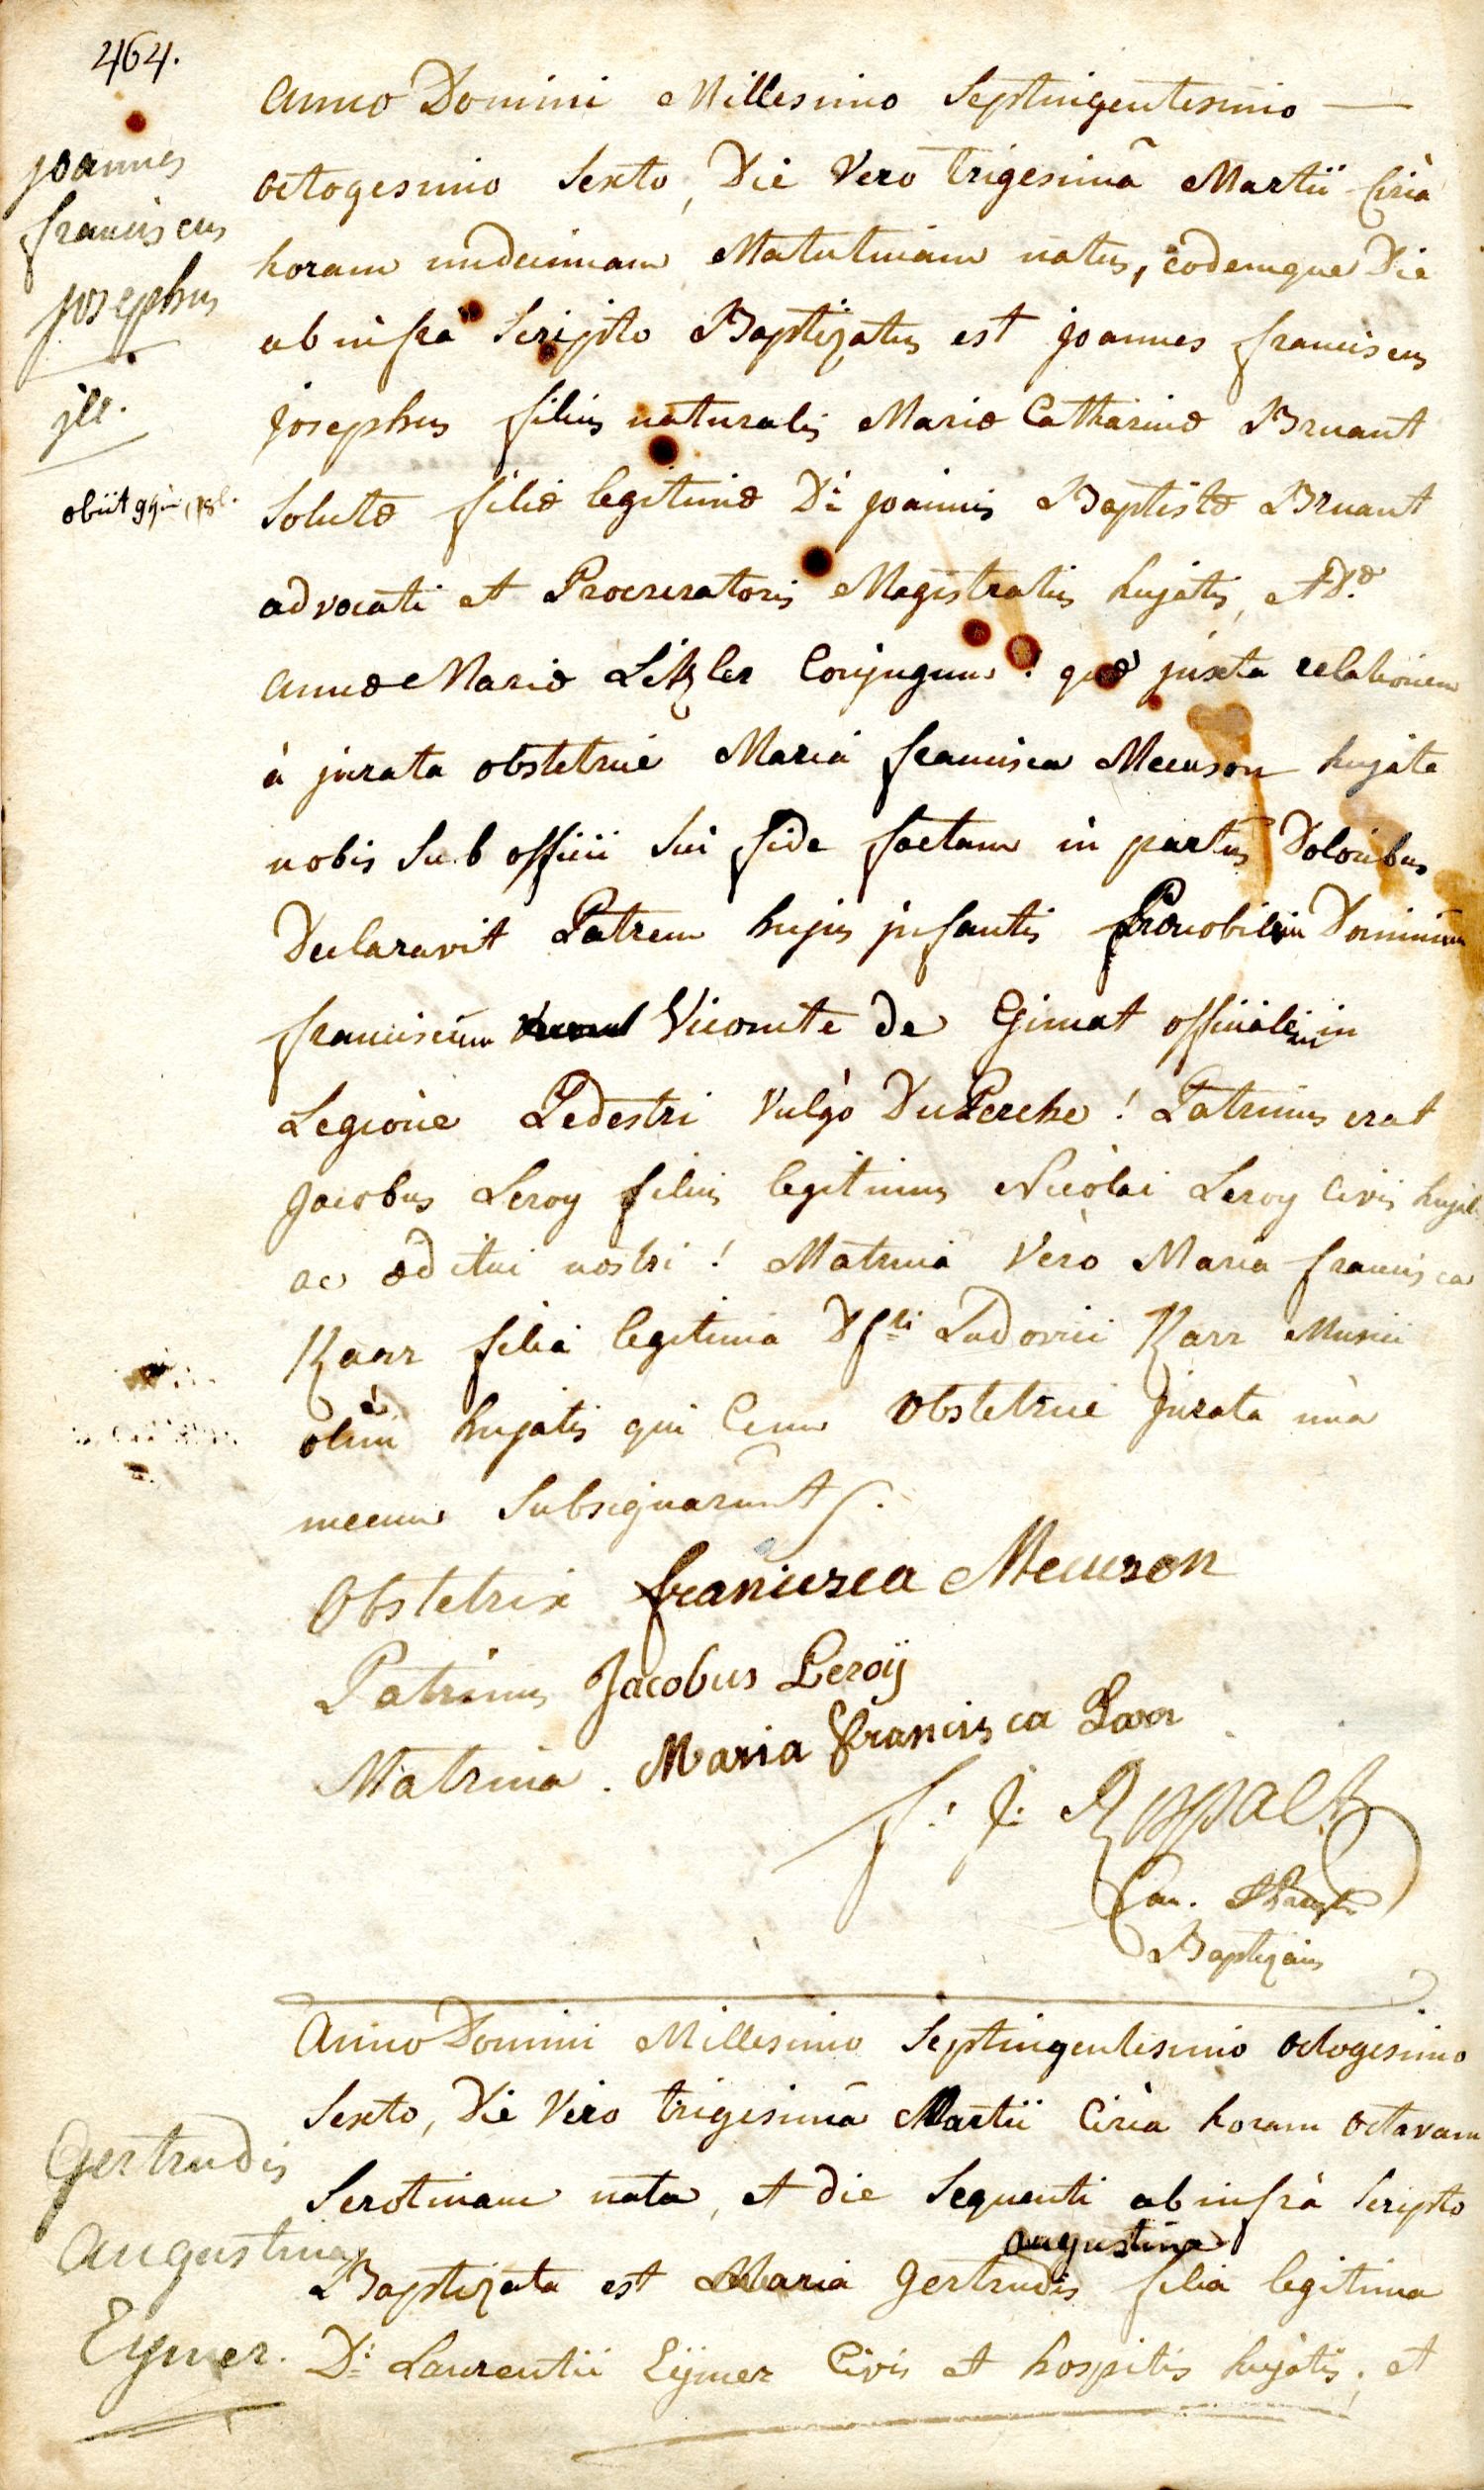 464.
Joannes
franciscus
Josephus
ill.
obiit
Anno Domini Millesimo Septingentesimo —
octogesimo Sexto, Die Vero trigesimâ Martii Circà
horam undecimam Matutinam natus, eodemque Die
ab infrà Scripto Baptizatus est Joannes franciscus
Josephus filius naturalis Mariæ Catharinæ Bruant
Solutæ filiæ legitimæ Di Joannis Baptistæ Bruant
advocati et Procuratoris Magistratûs hujatis, et Dæ
Annæ Mariæ Litzler Conjugum! quæ juxta relationem
à jurata obstetrice Mariâ franciscâ Mecuson hujate
nobis Sub officii Sui fide factam in partûs Doloribus
Declaravit Patrem hujus infantis Prænobilem Dominum
franciscum Vicomte de Gimat officialem in
Legione Pedestri Vulgò Du Perche! Patrinus erat
Jacobus Leroy filius legitimus Nicolai Leroy Civis hujat.
ac æditui nostri! Matrina Verò Maria francisca
Karr filia legitima Ludovici Karr Musici
olim hujatis qui Cum Obstetrice Jurata unà
mecum Subsignarunt.
Obstetrix francisca Mecuson
Patrinus Jacobus Leroÿ
Matrina. Maria francisca Karr
f: J: Ruppalt
Can.
Baptizans
Gertrudis
Augustina
Eymer.
Anno Domini Millesimo Septingentesimo octogesimo
Sexto, Die Vero trigesimâ Martii Circà horam octavam
Serotinam nata, et die Sequenti ab infrà Scripto
augustina
Baptizata est Maria Gertrudis filia legitima
Di Laurentii Eÿmer Civis et hospitis hujatis, et